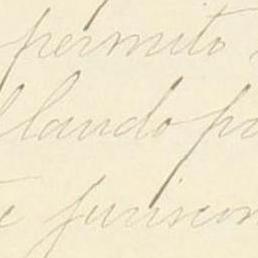 permito
llando pa
te juriscon